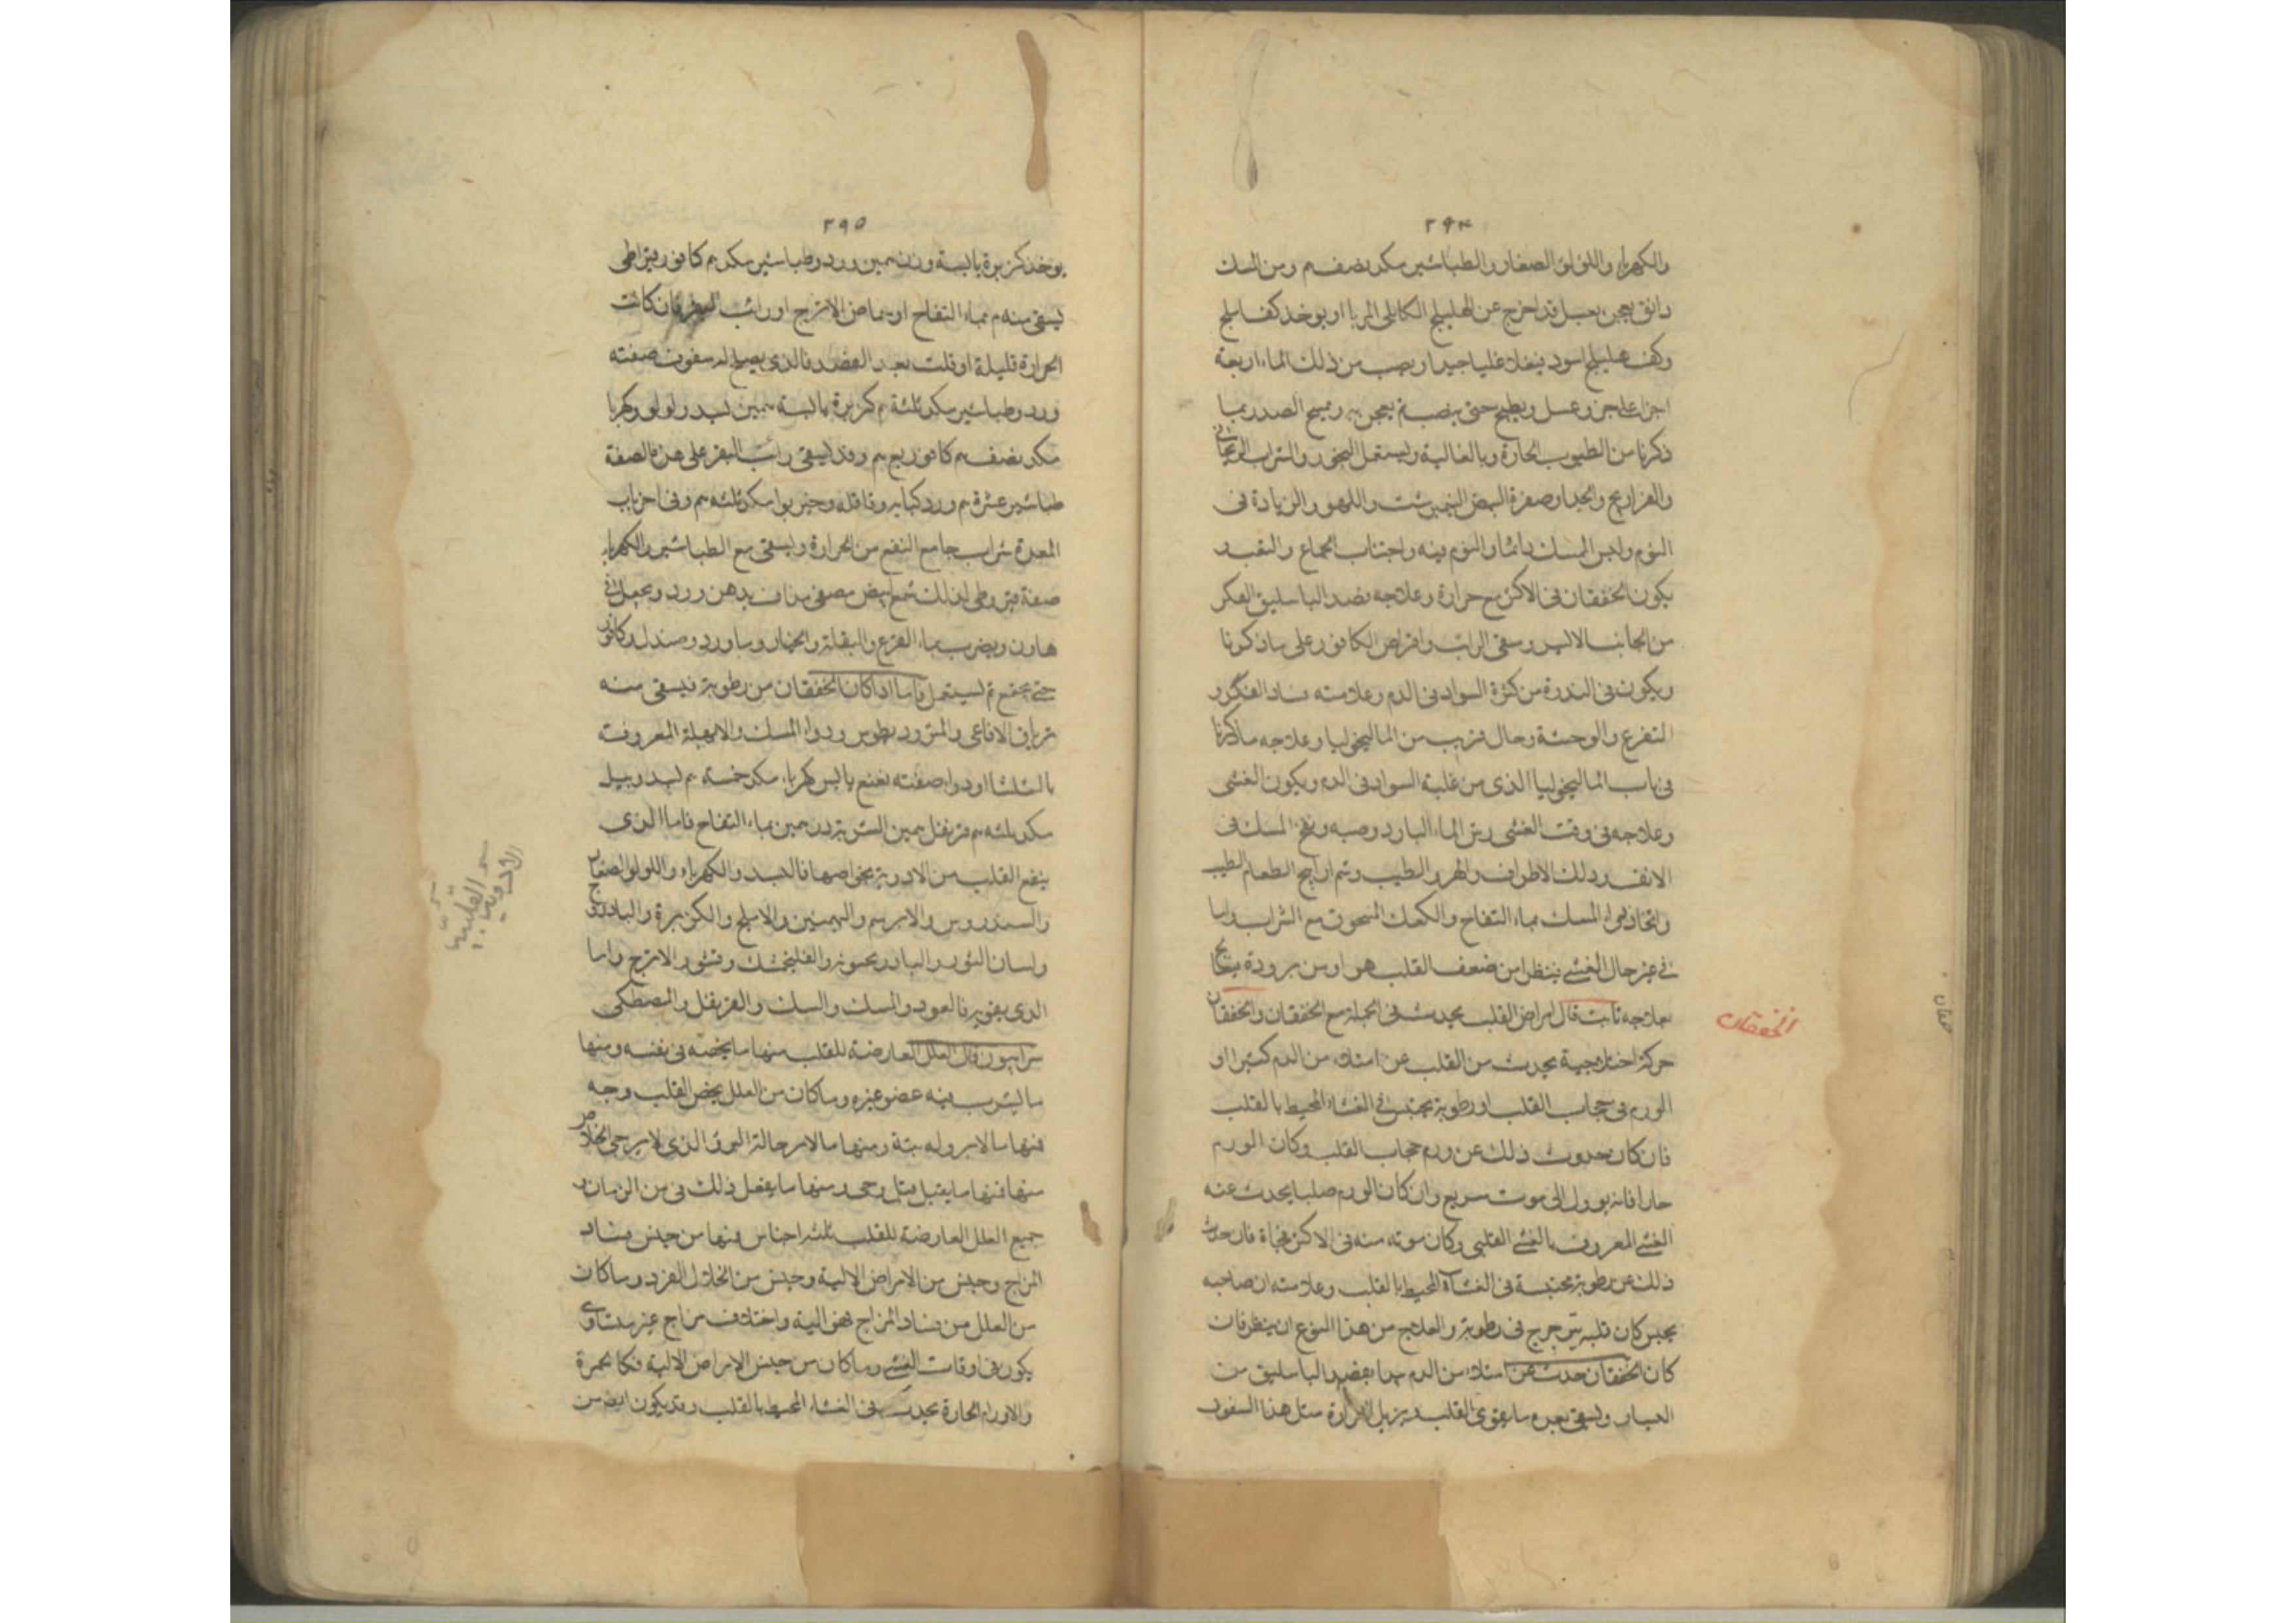 ٢٩٤
والكهربا واللؤلؤ الصغار والطباشير مكد نصف م ومن السك
دانق يعجن بعسل قد اخرج عن الهليلج الكابلى المربا او يوخذ كف املج
وكف هليلج اسود فيغلا غليا جيدا ويصب من ذلك الماء اربعة
اجزا على جزو عسل ويطبخ حتى ثم يعجن به ويمسح الصدر بما
ذكرنا من الطيوب الحارة وبالغالية ويستعمل البخور والشراب الريحانى
والفراريج والجدا وصفرة البيض النيمبرشت واللهو والزيادة فى
النوم ولبس المسك دائما والنوم فيه واجتناب الجماع والفصد
يكون الخفقان فى الاكثر مع حرارة وعلاجه فصد الباسليق
من الجانب الايسر وسقى الرائب واقراص الكافور على ما ذكرنا
ويكون فى الندرة من كثرة السواد فى الدم وعلامته فساد الفكر و
التفزع والوحشة وحال قريب من الماليخوليا وعلاجه ما ذكرنا
فى باب الماليخوليا الذى من غلبة السواد فى الدم ويكون الغشى
وعلاجه فى وقت الغشى رش الماء البارد وصبه ونفخ المسك فى
الانف ودلك الاطراف والطيب وشم اراييح الطعام الطيب
واتخاذ المسك بماء التفاح والكعك المسحوق مع الشراب واما
فى غير حال الغشى فينظر امن ضعف القلب هو او من برودة
علاجه ثابت قال امراض القلب يحدث فى الجملة مع الخفقان والخفقان
حركة اختلاجية يحدث من القلب عن امتلاء من الدم كثيرا او
الورم فى حجاب القلب او رطوبة يحتبس فى الغشاء المحيط بالقلب
فان كان حدوث ذلك عن ورم حجاب القلب وكان الورم
حارا فانه يوول الى موت سريع وان كان الورم صلبا يحدث عنه
الغشى المعروف بالغشى القلبى وكان موته منه فى الاكثر فجاة فان حدث
ذلك عن رطوبة محتبسة فى الغشاء المحيط بالقلب وعلامته ان صاحبه
يحس كان قلبه يترجرج فى رطوبة والعلاج من هذا النوع ان ينظر فان
كان الخفقان حدث عن امتلاء من الدم بدا بفصد الباسليق من
اليسار ويسقى بعده ما يقوى القلب ويزيل الحرارة مثل هذا السفوف
الخفقان
٢٩٥
يوخذ كزبرة يابسة وزن درهمين ورد وطباشير مكد م كافور قيراطى
يسقى منه م بماء التفاح او بحماض الاترج او رائب البقر فان كانت
الحرارة قليلة او قلت بعد الفصد فالذى يصلح له سفوف صفته
ورد وطباشير مكد ثلثة م كزبرة يابسة درهمين بسد ولولو وكهربا
مكد نصف م كافور ربع م وقد يسقى رائب البقر على هذه الصفة
طباشير عشرة م ورد كبابه وقاقله وخيربوا مكد ثلثه م وفى
المعدة شراب جامع النفع من الحرارة ويسقى مع الطباشير والكهربا
صفة قيروطى لذلك شمع ابيض مصفى مذاف بدهن ورد ويجعل فى
هاون ويضرب بماء القرع والبقلة والخيار وماورد وصندل وكافور
حتى يجتمع ثم يستعمل فاما اذا كان الخفقان من رطوبة فيسقى منه
ترياق الافاعى والمثروديطوس ودوا المسك والامهلة المعروفة
بالثلثا او دوا صفته نعنع يابس كهربا مكد خمسة م بسد وبيل
مكد ثلثه م قرنفل درهمين الشربة درهمين بماء التفاح فاما الذى
ينفع القلب من الادوية بخواصها فالبسد والكهربا واللولو الصغار
والسندروس والابريسم والبهمنين والاملج والكزبرة والباذروج
ولسان الثور والبادرنجبويه والفلنجمشك وقشور الاترج واما
الذى يقويه فالعود والمسك والسك والقرنفل والمصطكى
سرابيون قال العلل العارضة للقلب منها ما يخصه فى نفسه ومنها
ما يشرب فيه عضو غيره وما كان من العلل يخص القلب وحده
فمنها ما لابرو له بتة ومنها ما لا يرجى الخلاص
منها فمنها ما يقتل ومنها ما يفعل ذلك فى من الزمان و
جميع العلل العارضة للقلب ثلثه اجناس فمنها من جنس فساد
المزاج وجنس من الامراض الالية وجنس من انحلال الفرد وما كان
من العلل من فساد المزاج فهو الية واختلاف مزاج غير متساوى
يكون فى اوقات الغشى وما كان من جنس الامراض الالية فكالحمرة
والاورام الحارة يحدث فى الغشاء المحيط بالقلب وقد يكون ايضا من
الادوية القلبية